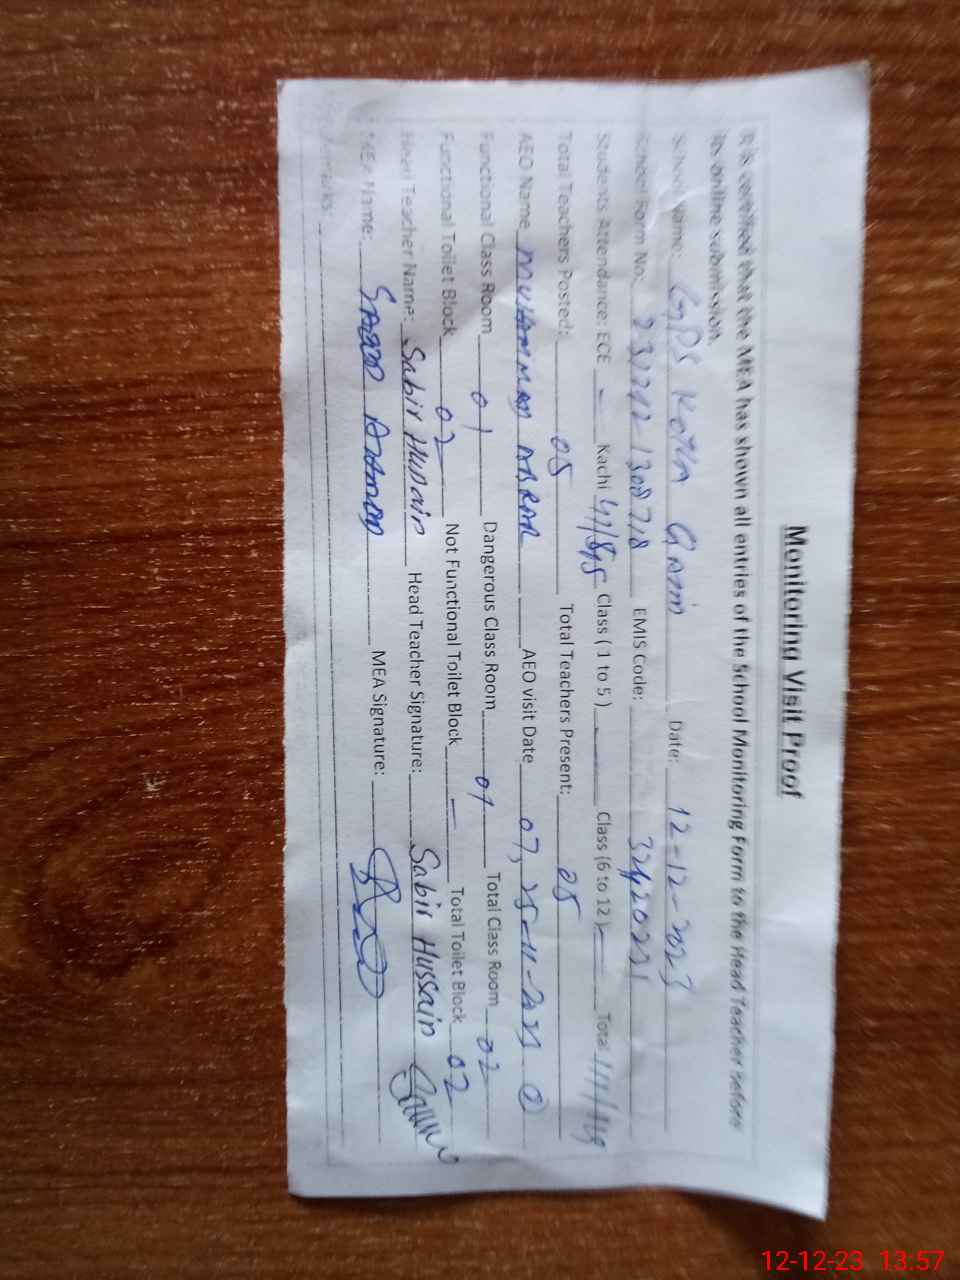 Monitoring Visit Proof
It is certified that the MEA has shown all entries of the School Monitoring Form to the Head Teacher before
its online submission.
School Name: GPS Kotla Qaim Date: 12-12-2023
School Form No: EMIS Code:
Students Attendance: ECE - Kachi Class ( 1 to 5 ) - Class (6 to 12 ) - Total
Total Teachers Posted: 05 Total Teachers Present: 05
AEO Name MUHAMMAD ABRAR AEO visit Date 07,
Functional Class Room 01 Dangerous Class Room 01 Total Class Room 02
Functional Toilet Block 02 Not Functional Toilet Block - Total Toilet Block 02
Head Teacher Name: Sabir Hussain Head Teacher Signature: Sabir Hussain
MEA Name: SAEED AHMAD MEA Signature:
Remarks:
12-12-23 13:57